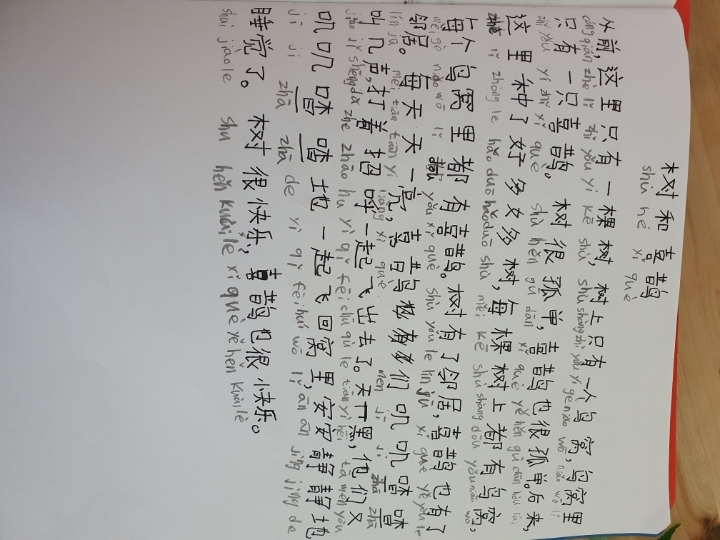 树和喜鹊
shù hé xǐ què
从前,这里只有一棵树,树上只有一个鸟窝,鸟窝里
cóng qián zhè lǐ zhǐ yǒu yì kē shù shù shàng zhǐ yǒu yí gè niǎo wō niǎo wō lǐ
只有一只喜鹊。树很孤单,喜鹊也很孤单。后来,
zhǐ yǒu yì zhī xǐ què shù hěn gū dān xǐ què yě hěn gū dān hòu lái
这里种了好多好多树,每棵树上都有鸟窝,
zhè lǐ zhòng le hǎo duō hǎo duō shù měi kē shù shàng dōu yǒu niǎo wō
每个鸟窝里都有喜鹊。树有了邻居,喜鹊也有了
měi gè niǎo wō lǐ dōu yǒu xǐ què shù yǒu le lín jū xǐ què yě yǒu le
邻居。每天天一亮,喜鹊们叽叽喳喳
lín jū měi tiān tiān yí liàng xǐ què men jī jī zhā zhā
叫几声,打着招呼一起飞出去了。天一黑,他们又
jiào jǐ shēng dǎ zhe zhāo hu yì qǐ fēi chū qù le tiān yì hēi tā men yòu
叽叽喳喳地一起飞回窝里,安安静静地
jī jī zhā zhā de yì qǐ fēi huí wō lǐ, ān ān jìng jìng de
睡觉了。树很快乐,喜鹊也很快乐。
shuì jiào le shù hěn kuài lè xǐ què yě hěn kuài lè